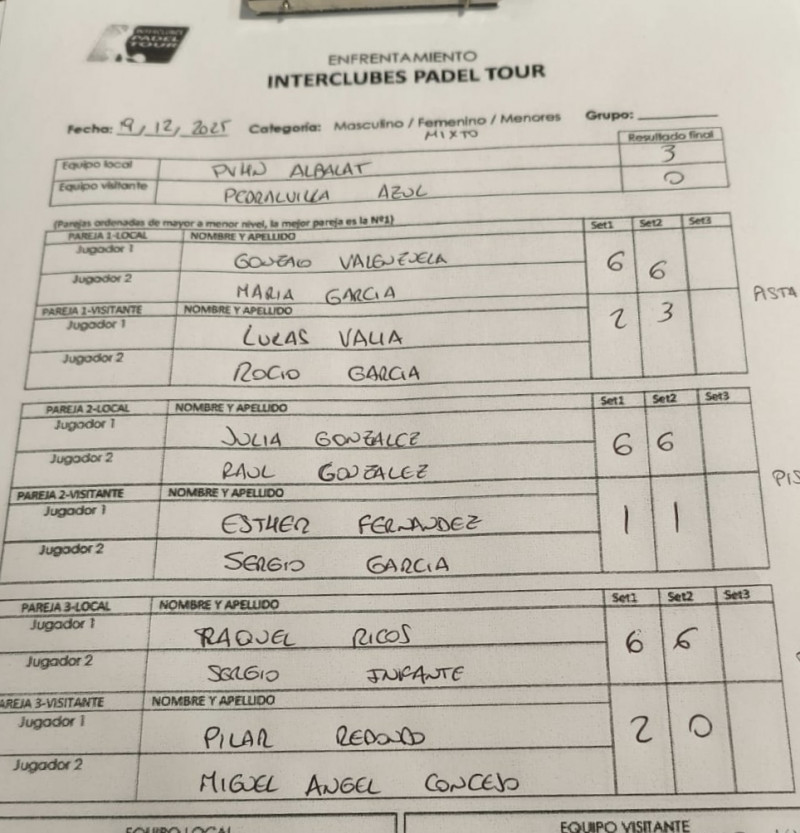 INTERCLUBES
PADEL
TOUR
ENFRENTAMIENTO
INTERCLUBES PADEL TOUR
Fecha: 9/12/2025 Categoría: Masculino / Femenino / Menores Grupo:
MIXTO
Resultado final
Equipo local PVHN ALBALAT 3
Equipo visitante PEDRALVILLA AZUL 0
(Parejas ordenadas de mayor a menor nivel, la mejor pareja es la Nº1)
PAREJA 1-LOCAL NOMBRE Y APELLIDO Set1 Set2 Set3
Jugador 1 GONZALO VALENZUELA 6 6
Jugador 2 MARIA GARCIA
PAREJA 1-VISITANTE NOMBRE Y APELLIDO
Jugador 1 LUCAS VALIA 2 3
Jugador 2 ROCIO GARCIA
PISTA
PAREJA 2-LOCAL NOMBRE Y APELLIDO Set1 Set2 Set3
Jugador 1 JULIA GONZALEZ 6 6
Jugador 2 RAUL GONZALEZ
PAREJA 2-VISITANTE NOMBRE Y APELLIDO
Jugador 1 ESTHER FERNANDEZ 1 1
Jugador 2 SERGIO GARCIA
PIS
PAREJA 3-LOCAL NOMBRE Y APELLIDO Set1 Set2 Set3
Jugador 1 RAQUEL RICOS 6 6
Jugador 2 SERGIO INFANTE
AREJA 3-VISITANTE NOMBRE Y APELLIDO
Jugador 1 PILAR REDONDO 2 0
Jugador 2 MIGUEL ANGEL CONCEJO
EQUIPO LOCAL EQUIPO VISITANTE